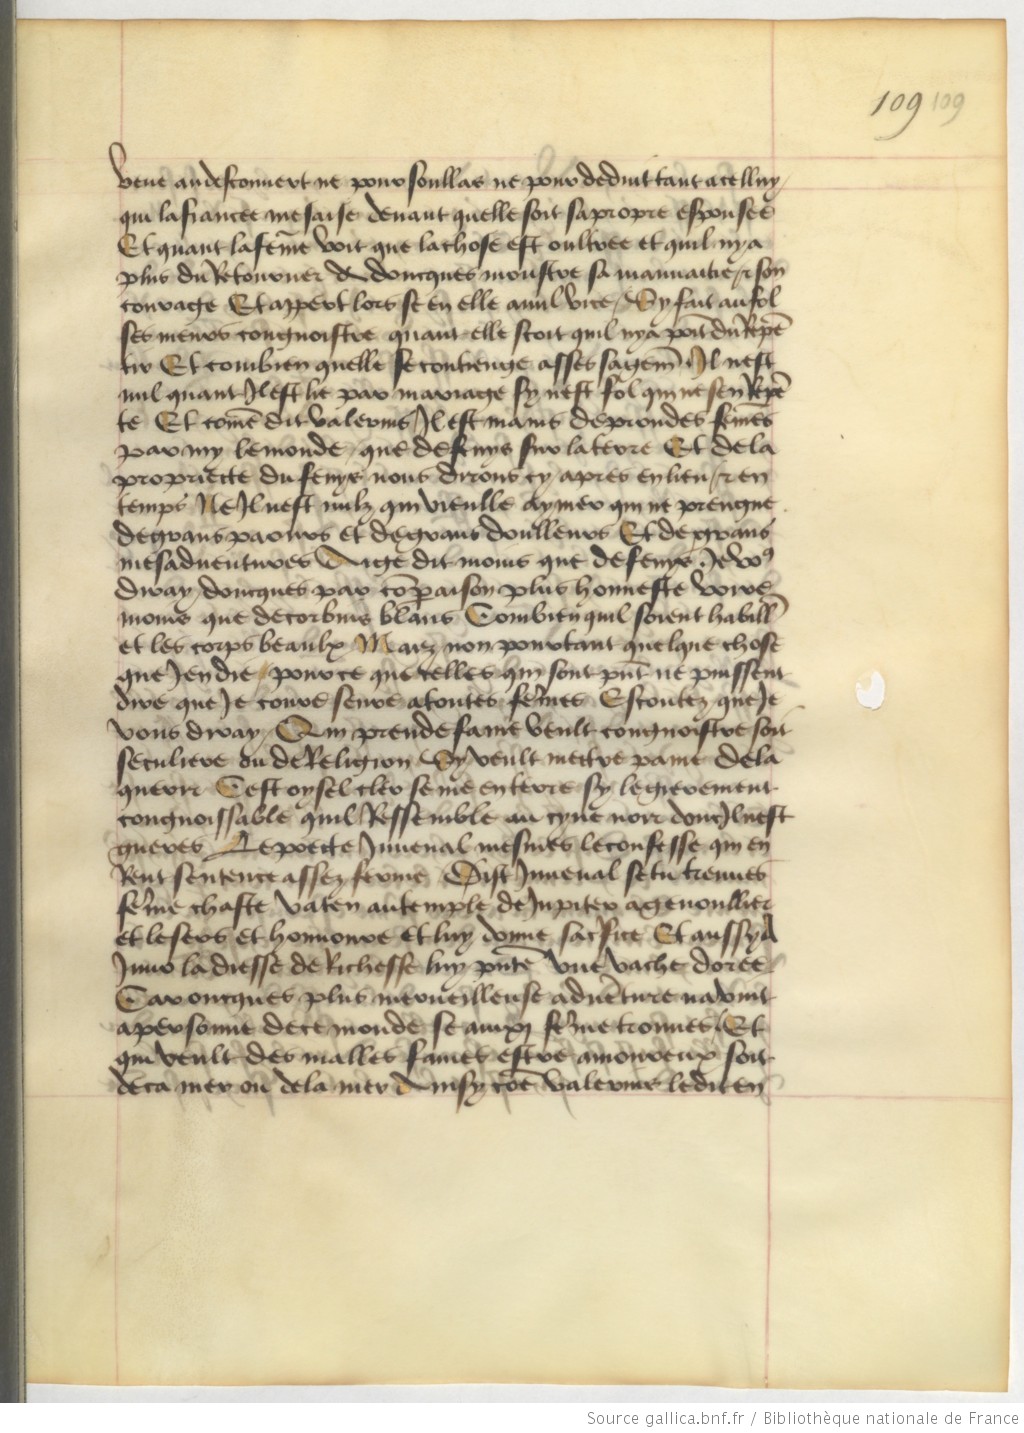 109 109
veue au desconuert ne pour soullas ne pour deduit tant a celluy
qui la fiancee mesaise deuant quelle soit sa propre espousee
Et quant la fem̄e voit que la chose est oultree et quil ny a
plus du Retourner doncques monstre sa mauuaitie / et son
courage Et appert lors se en elle a nul vice / Sy fait au fol
ses meurs congnoistre quant elle scoit quil ny a poīt du Repē
tir Et combien quelle se contienge asses sagem̄ Il nest
nul quant Il est lie par mariage sy nest fol qui ne sen Repē
te Et com̄e dit valerius Il est mains de preudes fem̄es
par my le monde / que de fenys sur la terre Et de la
propriecte du fenyx nous dirons cy apres en lieu / et en
temps Ne Il nest nulz qui vieulle aymer qui ne prengne
de grans paours et de grans doulleurs Et de grans
mesaduentures dit moins que de fenyx Je voꝰ
diray doncques par cōparaison plus honneste voire
moins que de corbins blans Combien quil soient habill
et les corps beaulx Maiz non pourtant quelque chose
que Jen die / pour ce que celles qui sont pn̄t ne puissent
dire que Je coure seure a toutes fem̄es Escoutez que Je
vous diray / Qui preude fame veult congnoistre soit
seculiere ou de Religion Sy veult mectre paine de la
querir Cest oysel cler seme en terre sy legierement
congnoissable quil Ressemble au cyne noir donc Il nest
gueres Le poecte Juuenal mesmes le confesse qui en
Rent sentence assez ferme Dist Juuenal se tu treuues
fem̄e chaste va ten au temple de Jupiter agenoullier
et le sers et honnoure et luy donne sacrfice Et aussy a
Juno la diesse de Richesse luy pn̄te vne vache doree
Car oncques plus merueilleuse aduēture nauint
a personne de ce monde se ainxi fem̄e trouues Et
qui veult des malles fames estre amoureux soit
deca mer ou de la mer Ainsy cōe valerius le dit en